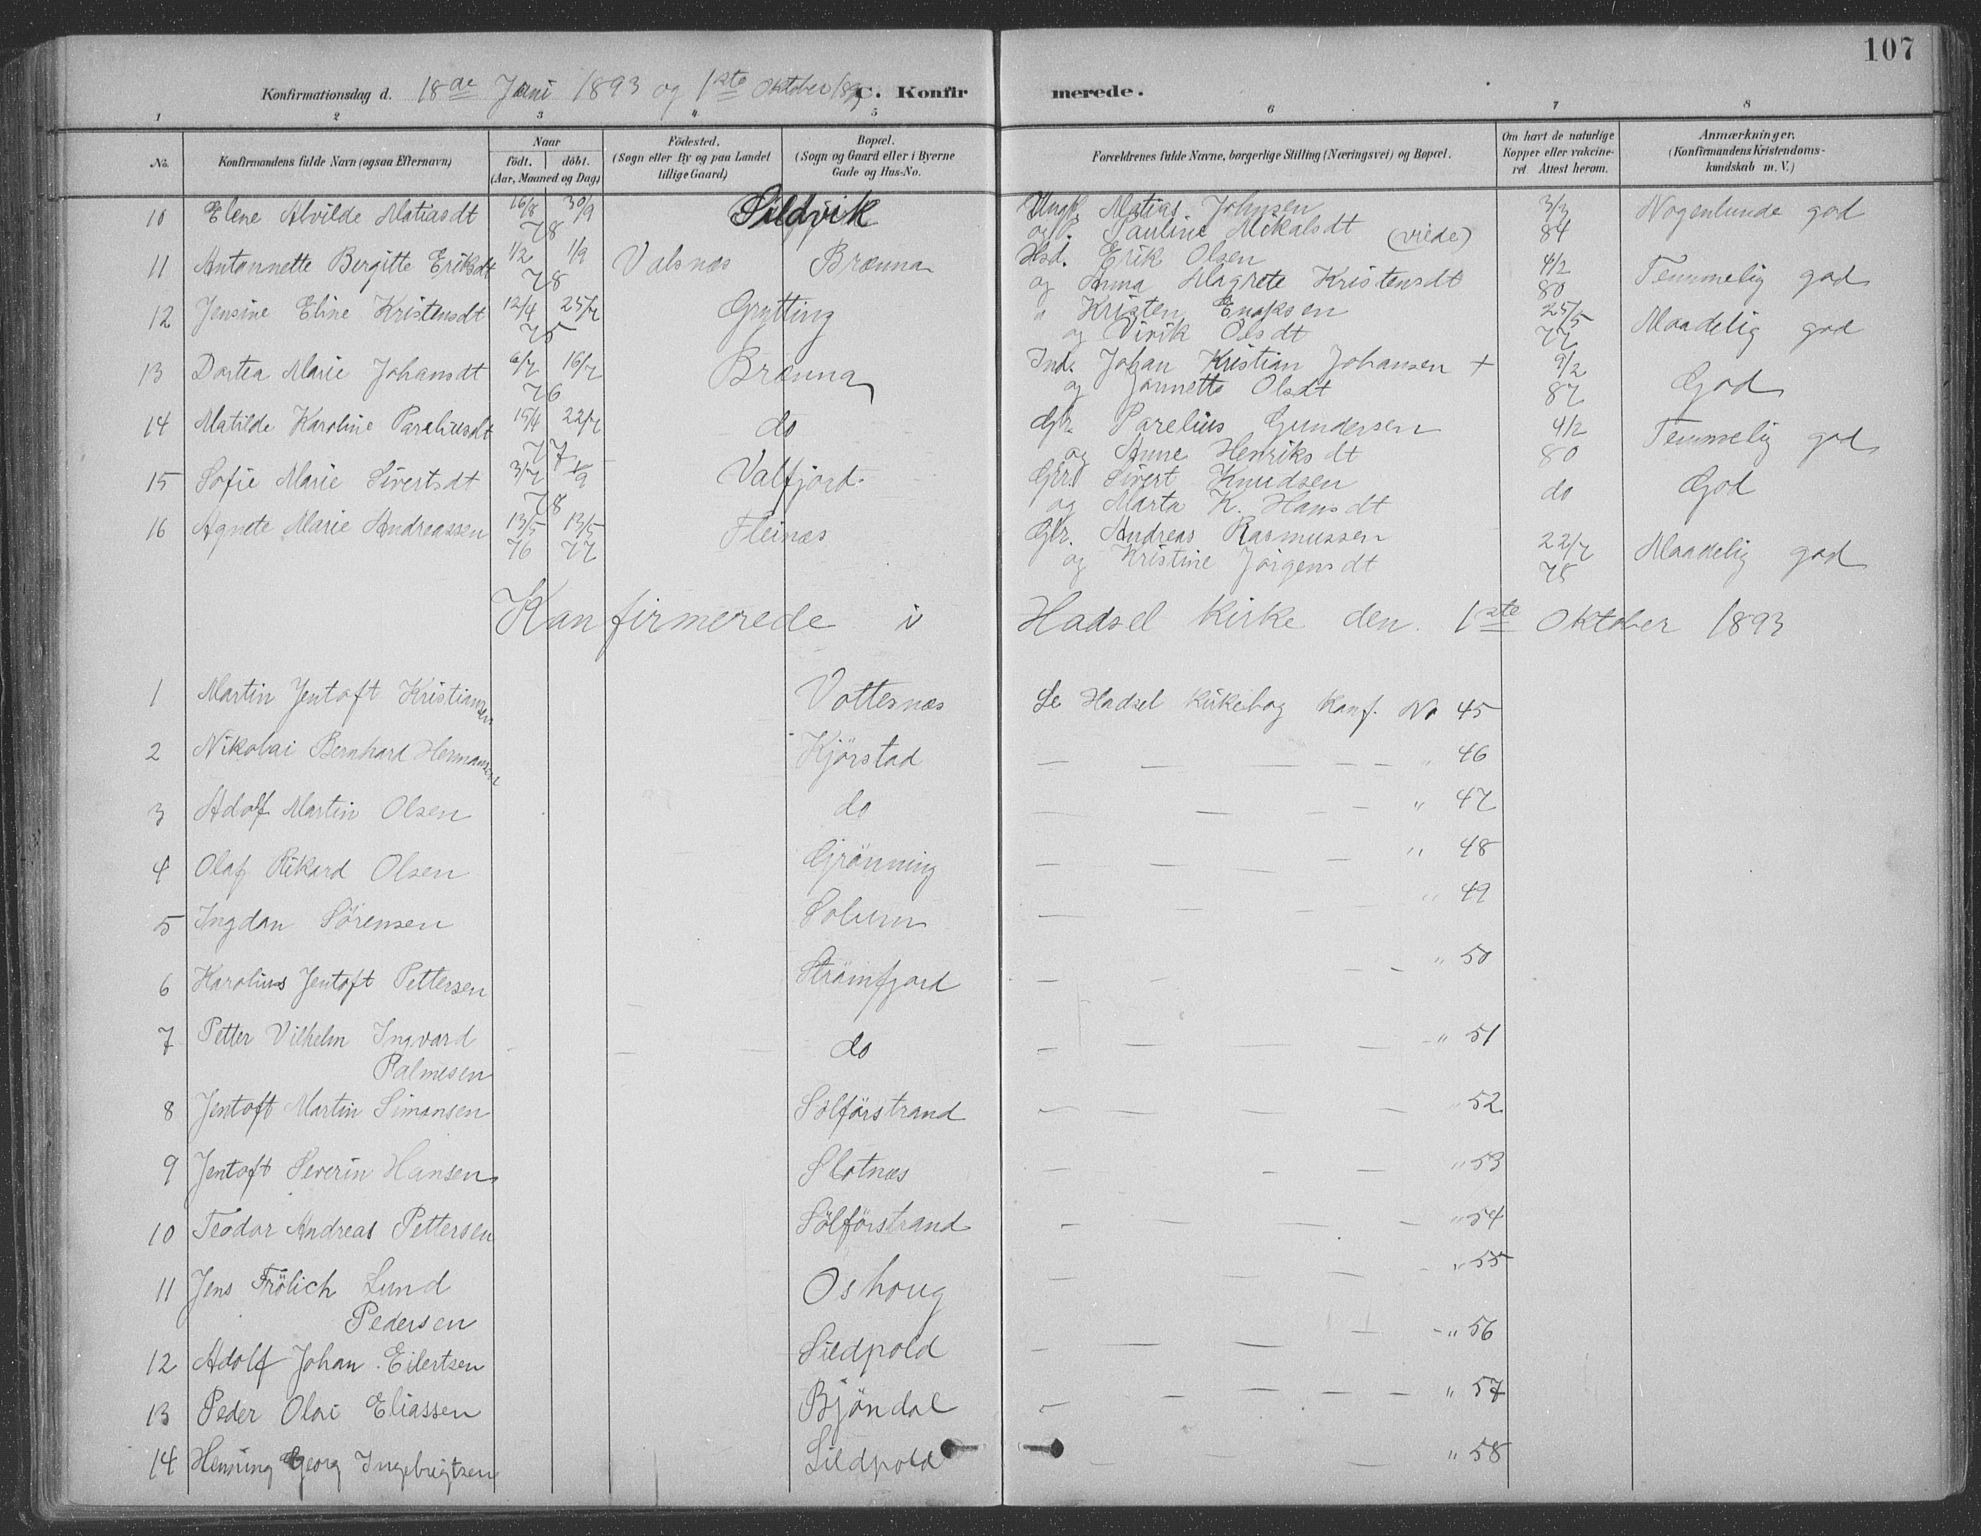 107
Konfirmationsdag d. 18de Juni 1893 og 1ste Oktober 1893 C. Konfirmerede.
1 2 3 4 5 6 7 8
No. Konfirmandens fulde Navn (ogsaa Efternavn) Naar født. døbt. (Aar, Maaned og Dag) Födested. (Sogn eller By og paa Landet tillige Gaard) Bopæl. (Sogn og Gaard eller i Byerne Gade og Hus-No. Forældrenes fulde Navne, borgerlige Stilling (Næringsvei) og Bopæl. Om havt de naturlige Kopper eller vakcineret Attest herom. Anmærkninger. (Konfirmandens Kristendomskundskab m. V.)
10 Elene Alvilde Matiasdt 16/8 30/9 78 Sildvik Ungk. Matias Johnsen 3/3 84 Nogenlunde god
og P. Pauline Mikalsdt (viede)
11 Antonnette Bergitte Eriksdt 1/2 1/9 78 Valsnæs Brænna Hsd. Erik Olsen 4/2 80 Temmelig god
og Anna Magrete Kristensdt
12 Jensine Eline Kristensdt 12/4 25/7 75 Grytting " Kristen Enoksen 25/5 77 Maadelig god
og Virik Olsdt
13 Dortea Marie Johansdt 6/7 16/7 76 Brænna Ind. Johan Kristian Johansen + 9/2 87 God
og Jannette Olsdt
14 Matilde Karoline Pareliusdt 15/4 22/7 77 do Gbr. Parelius Gundersen 4/2 80 Temmelig god
og Anne Henriksdt
15 Sofie Marie Sivertsdt 3/7 1/9 78 Valfjord Gbr. Sivert Knudsen do God
og Marta K. Hansdt
16 Agnete Marie Andreassen 13/5 76 13/5 77 Fleinæs Gbr. Andreas Rasmussen 22/7 78 Maadelig god
og Kristine Jörgensdt
Kanfirmerede i Hadsel Kirke den 1ste Oktober 1893
1 Martin Jentoft Kristiansen Vottesnæs Se Hadsel Kirkebog Kanf. No 45
2 Nikolai Bernhard Hermansen Kjörstad — — — — — " 46
3 Adolf Martin Olsen do — — — — " 47
4 Olaf Rikard Olsen Grönning — — — " 48
5 Ingdan Sörensen Solum — — — " 49
6 Karolius Jentoft Pettersen Strömfjord — — — — " 50
7 Petter Vilhelm Ingvard do — — — — — " 51
Palmesen
8 Jentoft Martin Simansen Sölförstrand — — — — — " 52
9 Jentoft Severin Hansen Slotnæs — — — — " 53
10 Teodor Andreas Pettersen Sölförstrand — — — — — " 54
11 Jens Frölich Lund Oshoug — — — — " 55
Pedersen
12 Adolf Johan Eilertsen Sildpold — — — — — " 56
13 Peder Olai Eliassen Bjöndal — — — — — — " 57
14 Henning Georg Ingebrigtsen Sildpold — — — — " 58